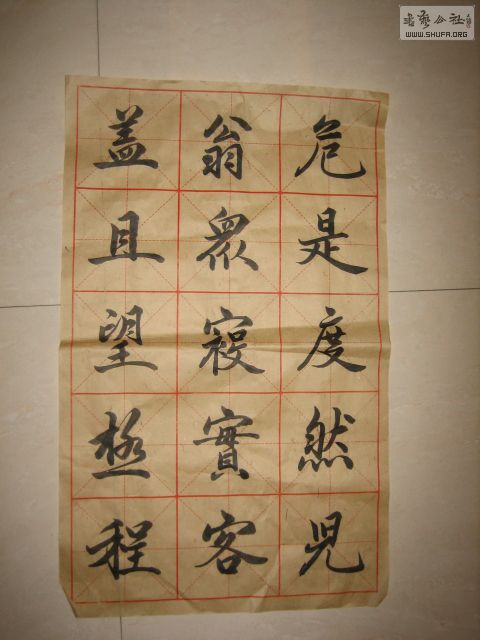 危是度然児
翁眾實客
盖且望極程
書藝公社
WWW.SHUFA.ORG